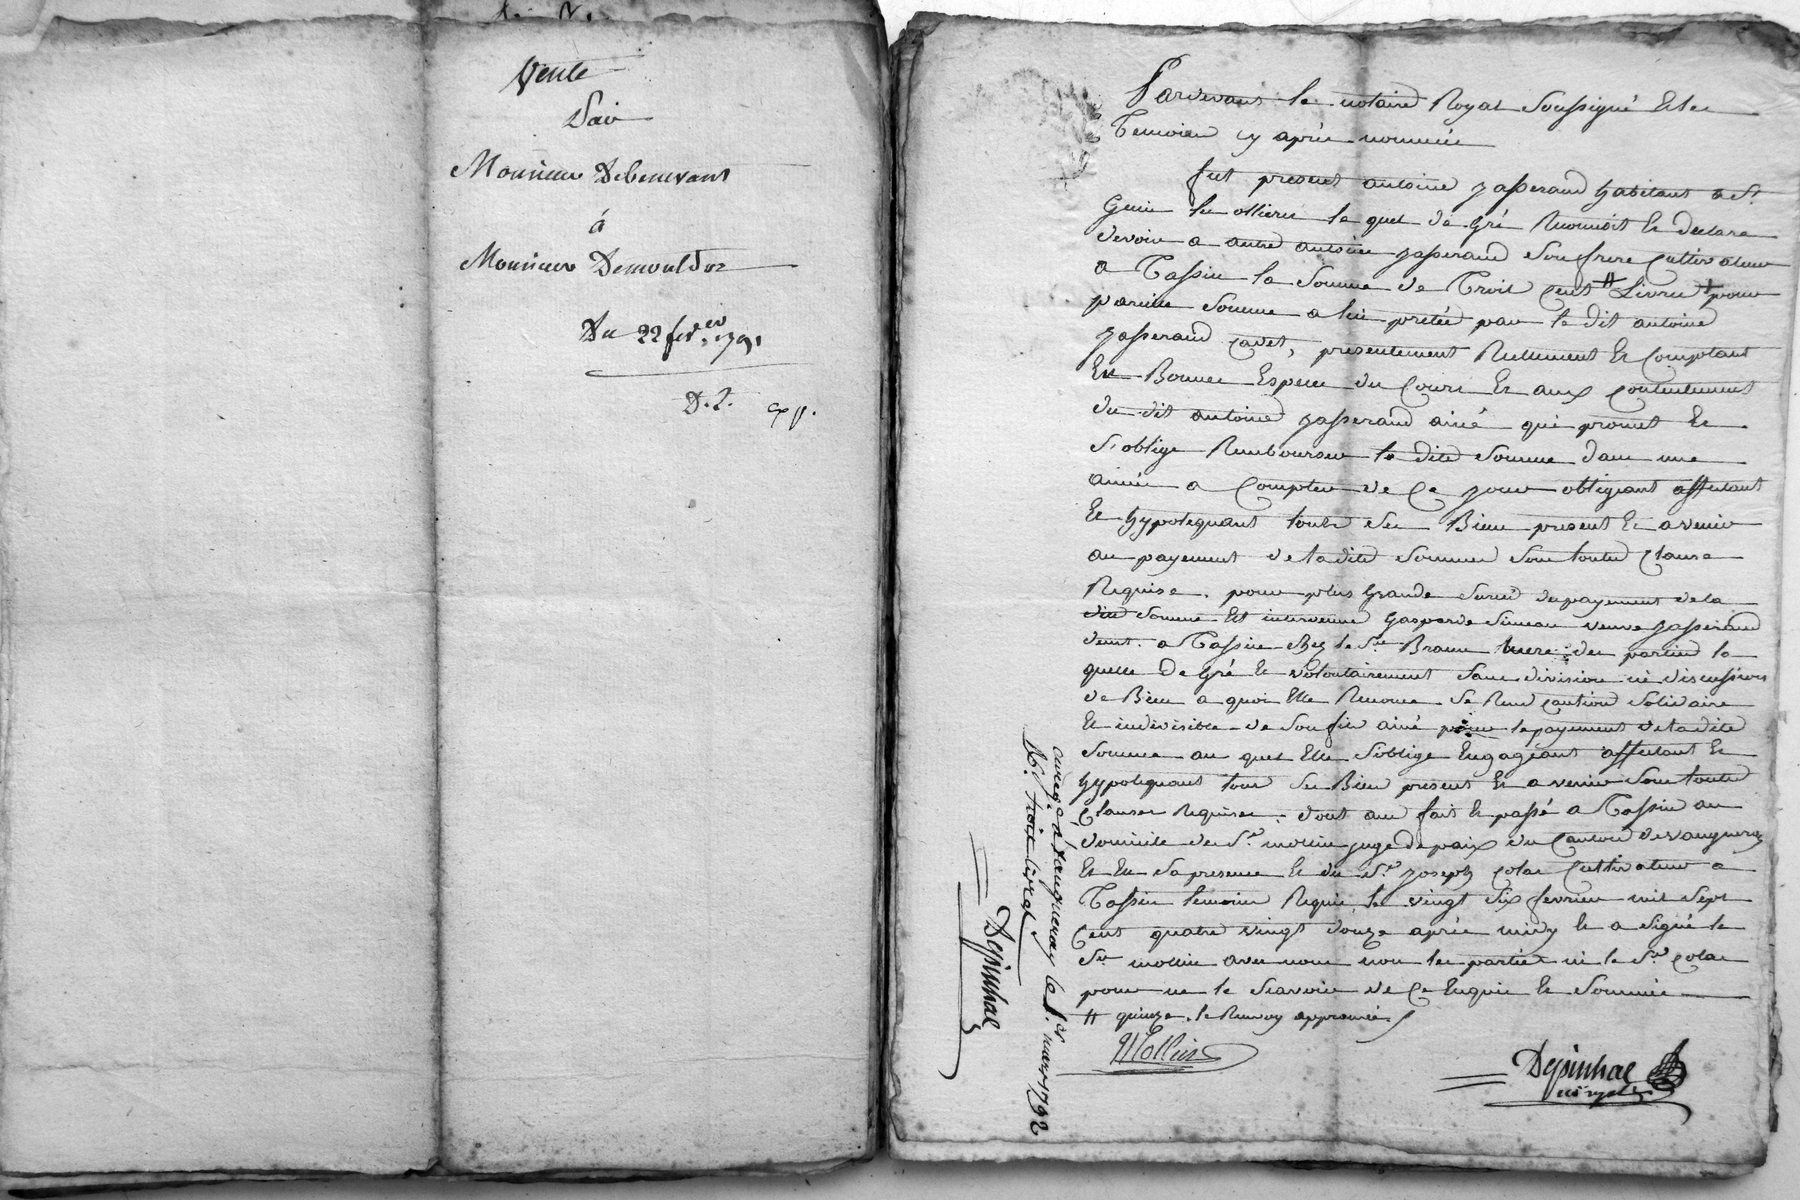 Vente
Par
Monsieur Debenevant
à
Monsieur Demouldoz
Du 22 fev.er 1791
D. 2. exp.
Pardevant le notaire Royal Soussigné Et les
Temoins cy après nommés
fut present antoine jasserand habitant a St.
Genis les ollieres le quel de Gré Reconnoit Et declare
devoir a autre antoine jasserand Son frere Cultivateur
a Tassin la Somme de Trois Cent # Livres pour
pareille Somme a lui pretée par le dit antoine
jasserand cadet, presentement Reellement Et Comptant
En Bonnes Especes du Cours Et aux Contentement
du dit antoine jasserand ainé qui promet Et
S'oblige Rembourser la dite Somme dans une
année a Compter de Ce jour obligeant affectant
Et hypotequant touts Ses Biens present Et avenir
au payement de ladite Somme Sous toutes Clause
Requise. pour plus Grande Sureté du payement de la
dite Somme Est intervenue Gasparde Simeau veuve jasserand
demt. a Tassin Chez le Sr. Braun mere des parties la
quelle De Gré Et volontairement Sans division ni discussion
de Biens a quoi Elle Renonce Se Rend Caution Solidaire
Et indivisible de Son fils ainé pour le payement de ladite
Somme au quel Elle S'oblige Engageant affectant Et
hypotequant tous Ses Biens present Et avenir Sous toutes
Clauses Requises. dont acte fait Et passé a Tassin au
domicile de Sr. mollin juge de paix du Canton de vaugneray
Et En Sa presence Et du Sr. joseph Colas Cultivateur a
Tassin temoins Requis le vingt Six fevrier mil Sept
Cent quatre vingt douze après midy Et a Signé le
Sr. mollin avec nous non les parties ni le Sr. Colas
pour ne le Scavoir de Ce Enquis Et Sommés
# quinze. le Renvoy approuvé.
Mollin
Depinhac
nore. royal
enreg.é à Vaugneray le 1.er mars 1792
R. trois livres
Depinhac